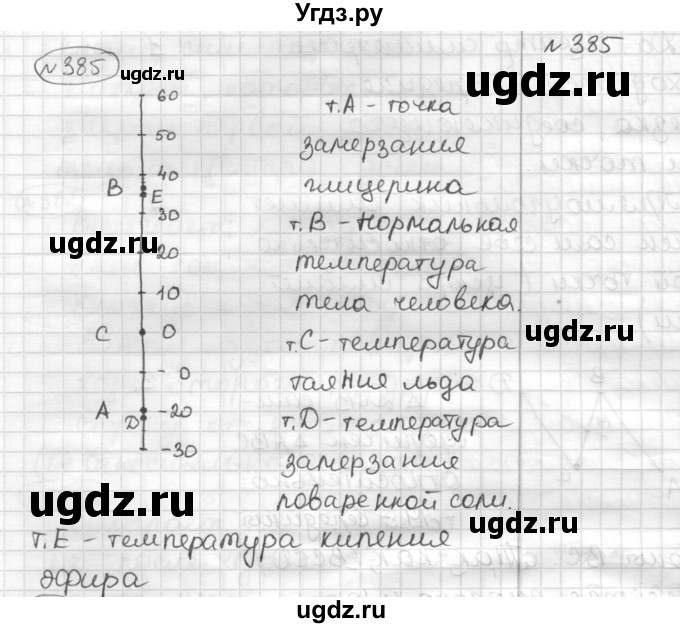 Угдз.ру
№ 385
ugdz.ru
№ 385
60
50
40
В
Е
30
ugdz.ru
20
10
С
0
- 0
А
-20
D
-30
ugdz.ru
т.А - точка
замерзания
глицерина
т.В - Нормальная
температура
тела человека.
т.С - температура
таяния льда
т.D - температура
замерзания
поваренной соли.
ugdz.ru
ugdz.ru
ugdz.ru
т.Е - температура кипения
эфира
ugdz.ru